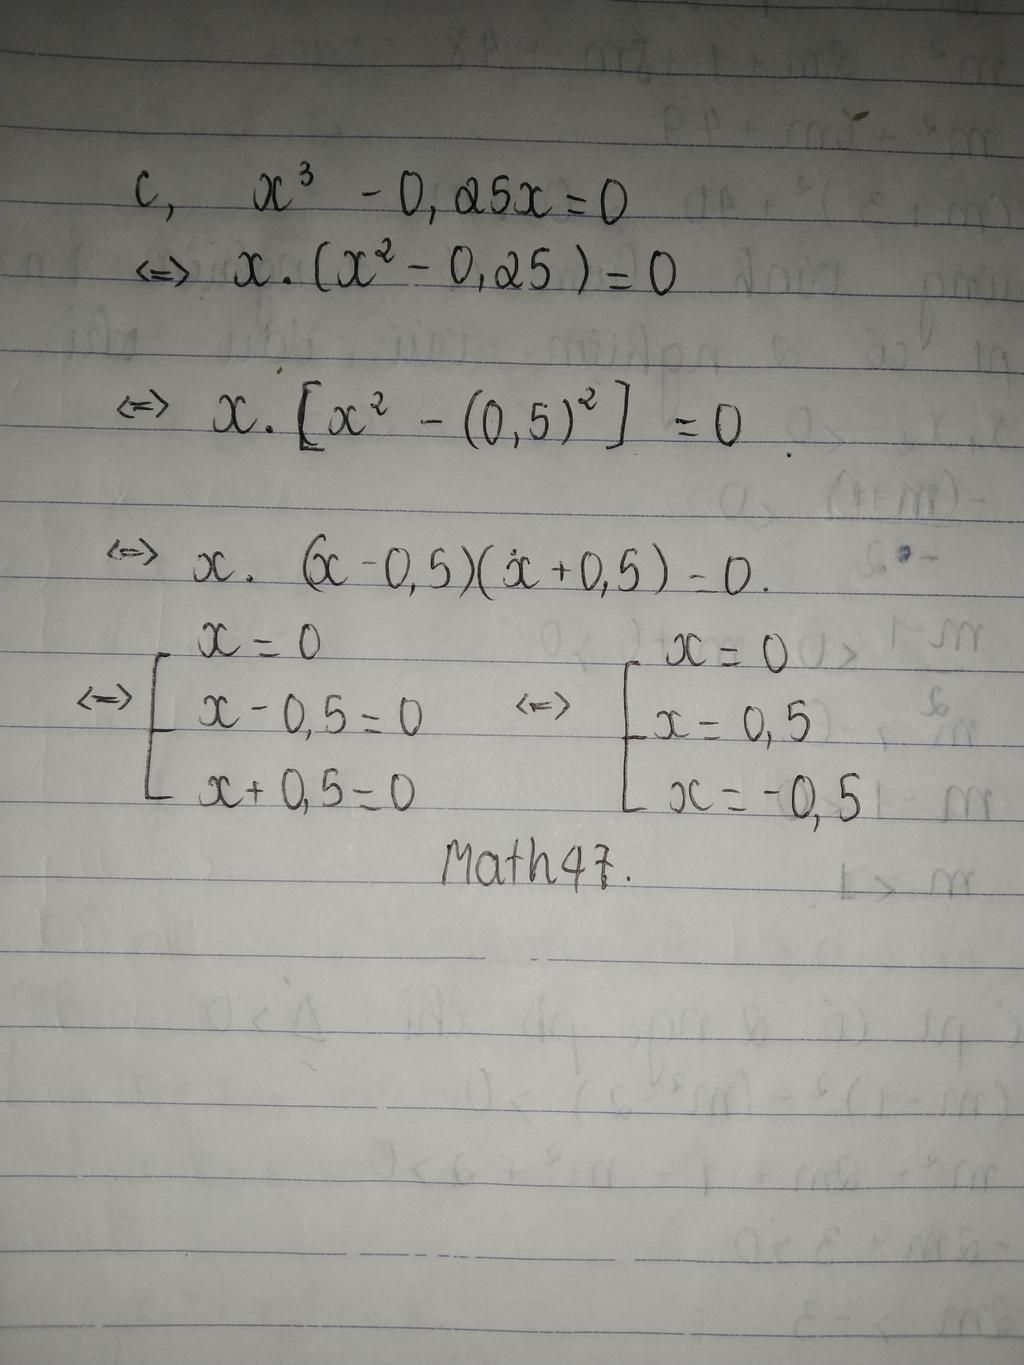 c, x³ - 0,25x = 0
<=> x.(x² - 0,25) = 0
<=> x.[x² - (0,5)²] = 0
<=> x. (x - 0,5)(x + 0,5) = 0.
<=> [ x = 0 <=> [ x = 0
x - 0,5 = 0 x = 0,5
x + 0,5 = 0 x = -0,5
Math47.